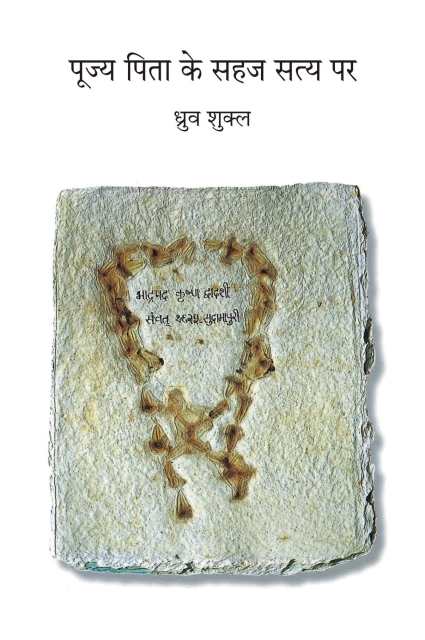 पूज्य पिता के सहज सत्य पर
ध्रुव शुक्ल
भाद्रपद कृष्ण द्वादशी
संवत् १९२५-सुदामापुरी